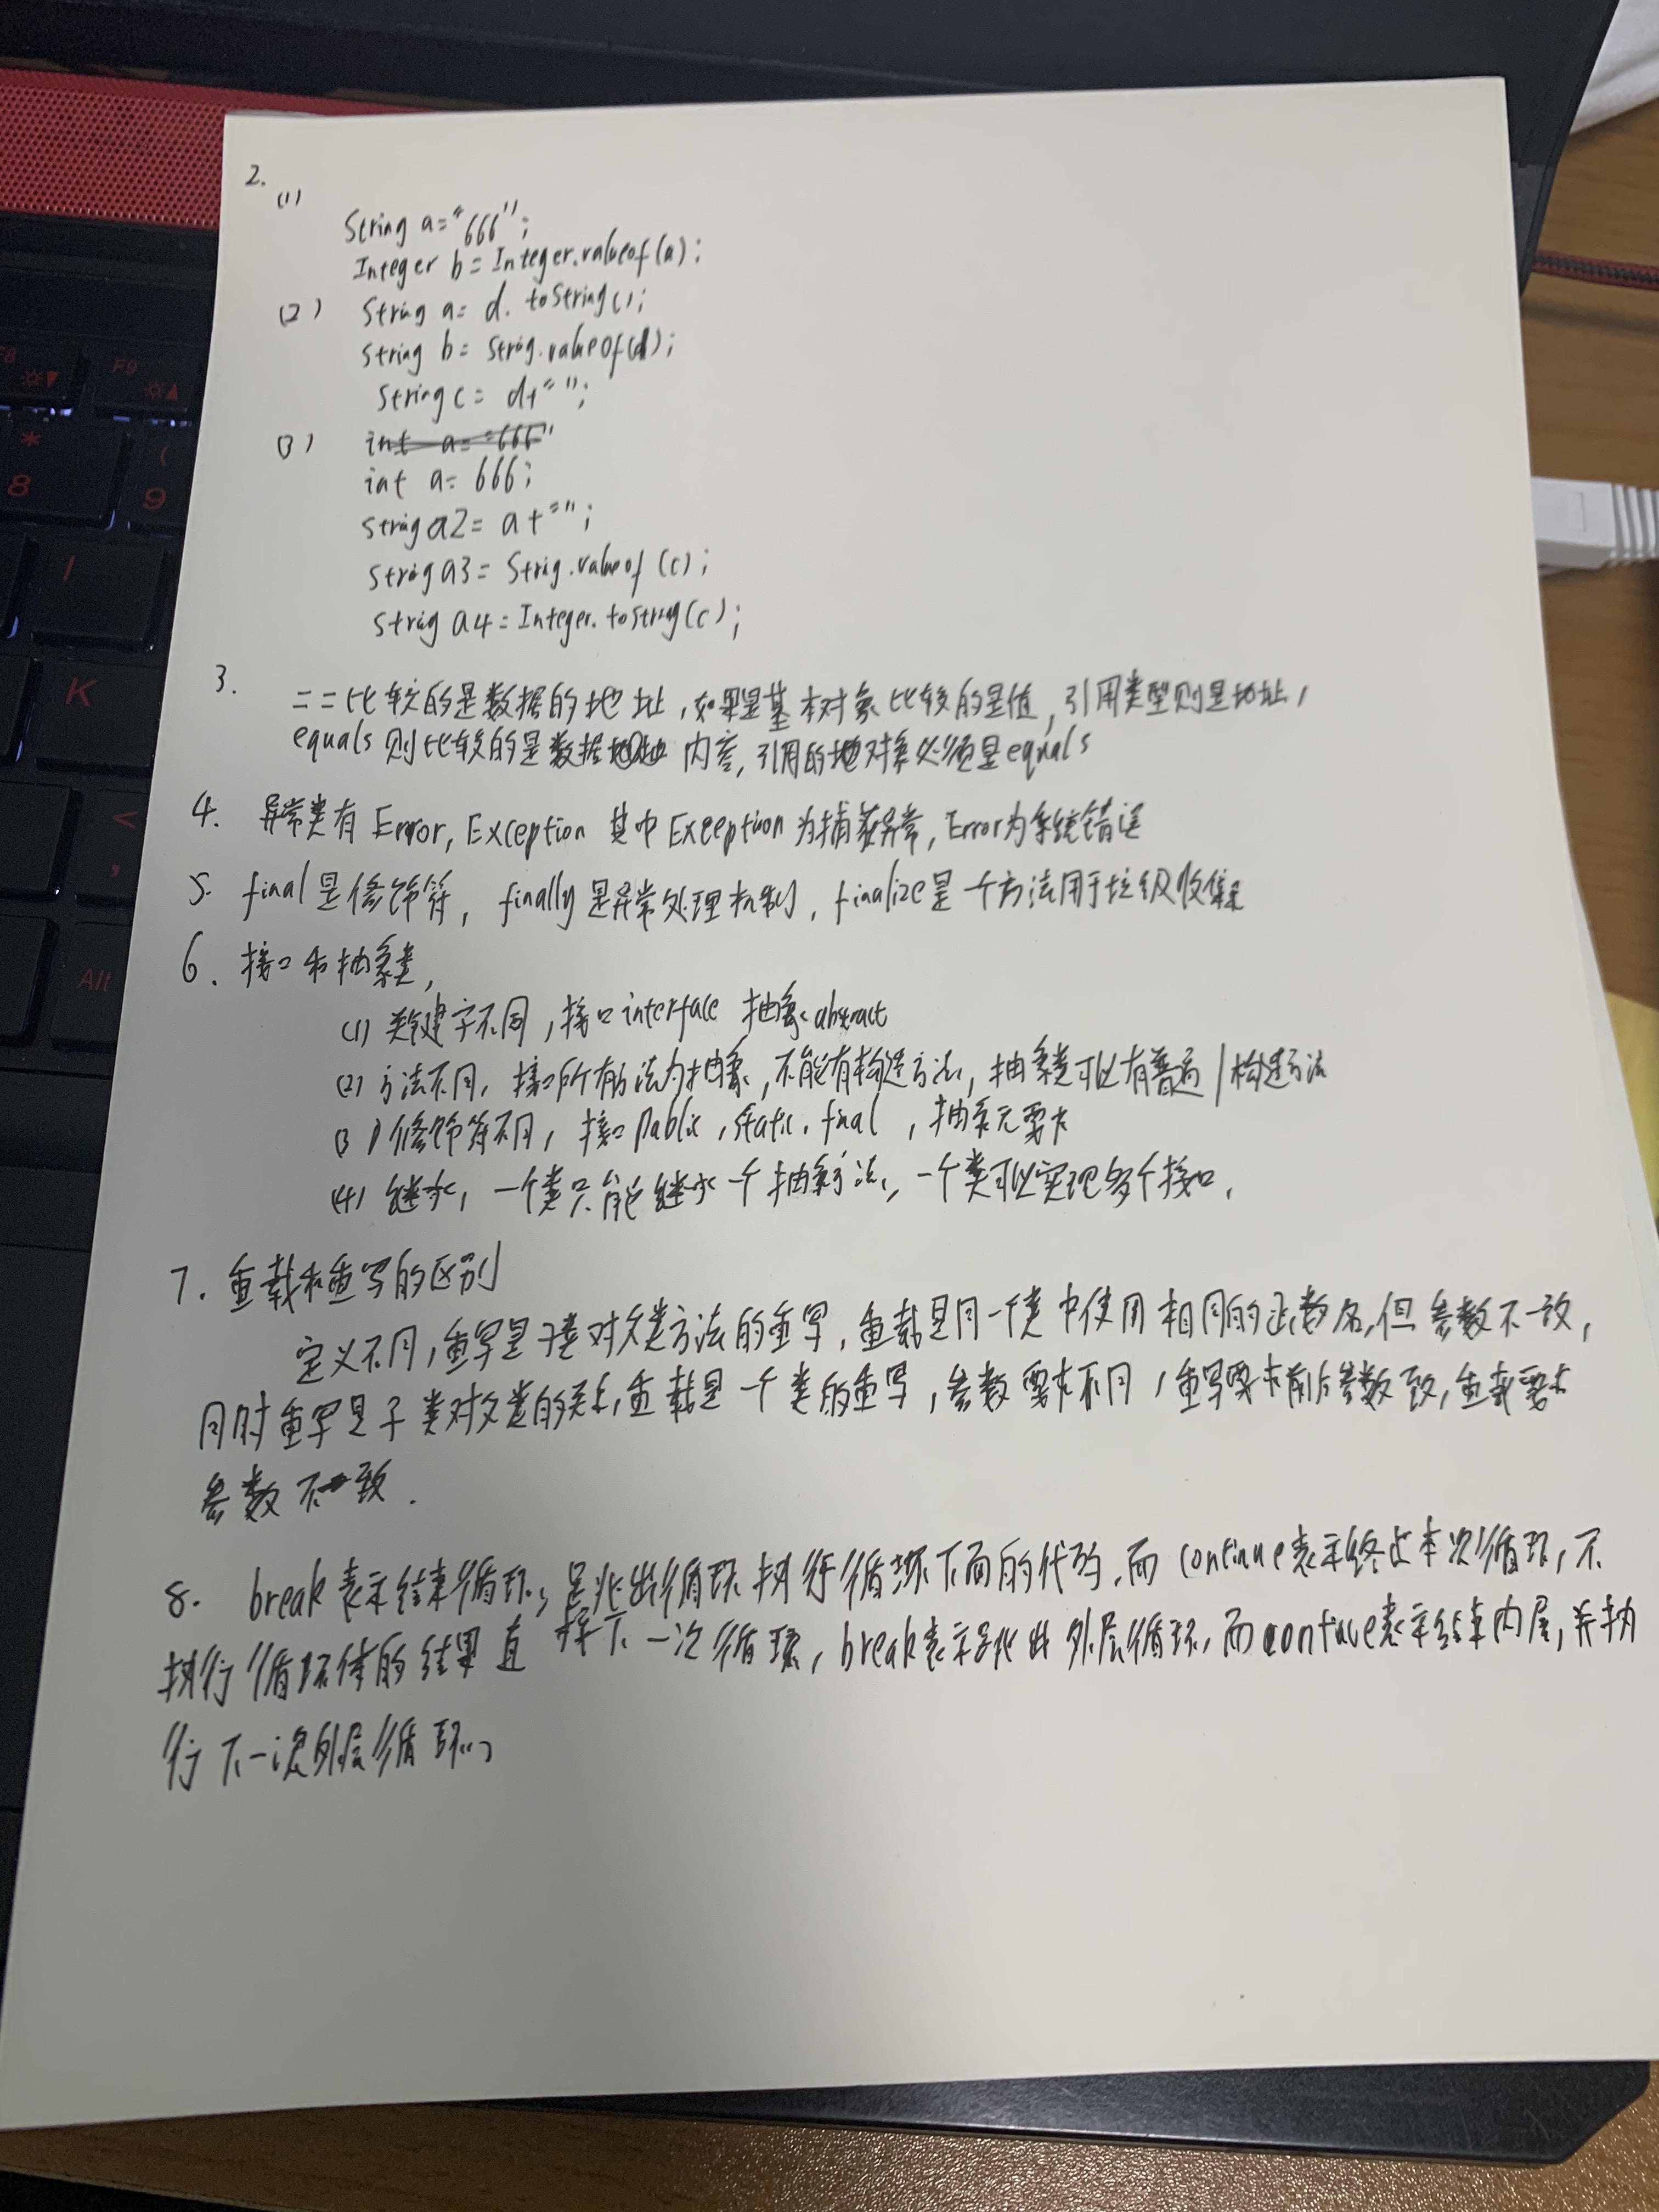 2.
(1)
String a="666";
Integer b=Integer.valueof(a);
(2) String a= d. toString();
String b= String.valueOf(d);
String c= d+"";
(3) int a="666"
int a= 666;
String a2= a+"";
String a3= String.valueof (c);
String a4=Integer.toString(c);
3. ==比较的是数据的地址,如果是基本对象比较的是值,引用类型则是地址,
equals则比较的是数据 内容,引用的 对象必须是equals
4. 异常类有Error, Exception 其中Exception为捕获异常,Error为系统错误
5. final是修饰符, finally是异常处理机制, finalize是一个方法用于垃圾收集
6. 接口和抽象类,
(1) 关键字不同,接口interface 抽象abstract
(2) 方法不同, 接口所有方法为抽象,不能有构造方法, 抽象类可以有普通/构造方法
(3) 修饰符不同, 接口public, static, final ,抽象无要求
(4) 继承, 一个类只能继承一个抽象方法, 一个类可以实现多个接口,
7. 重载和重写的区别
定义不同,重写是子类对父类方法的重写,重载是同一个类中使用相同的函数名,但参数不一致,
同时重写是子类对父类的关系,重载是一个类的重写,参数要求不同,重写要求前后参数一致,重载要求
参数不一致.
8. break表示结束循环,是跳出循环执行循环下面的代码,而continue表示终止本次循环,不
执行循环体的结果直接下一次循环,break表示跳出外层循环,而continue表示结束内层,并执
行下一次外层循环